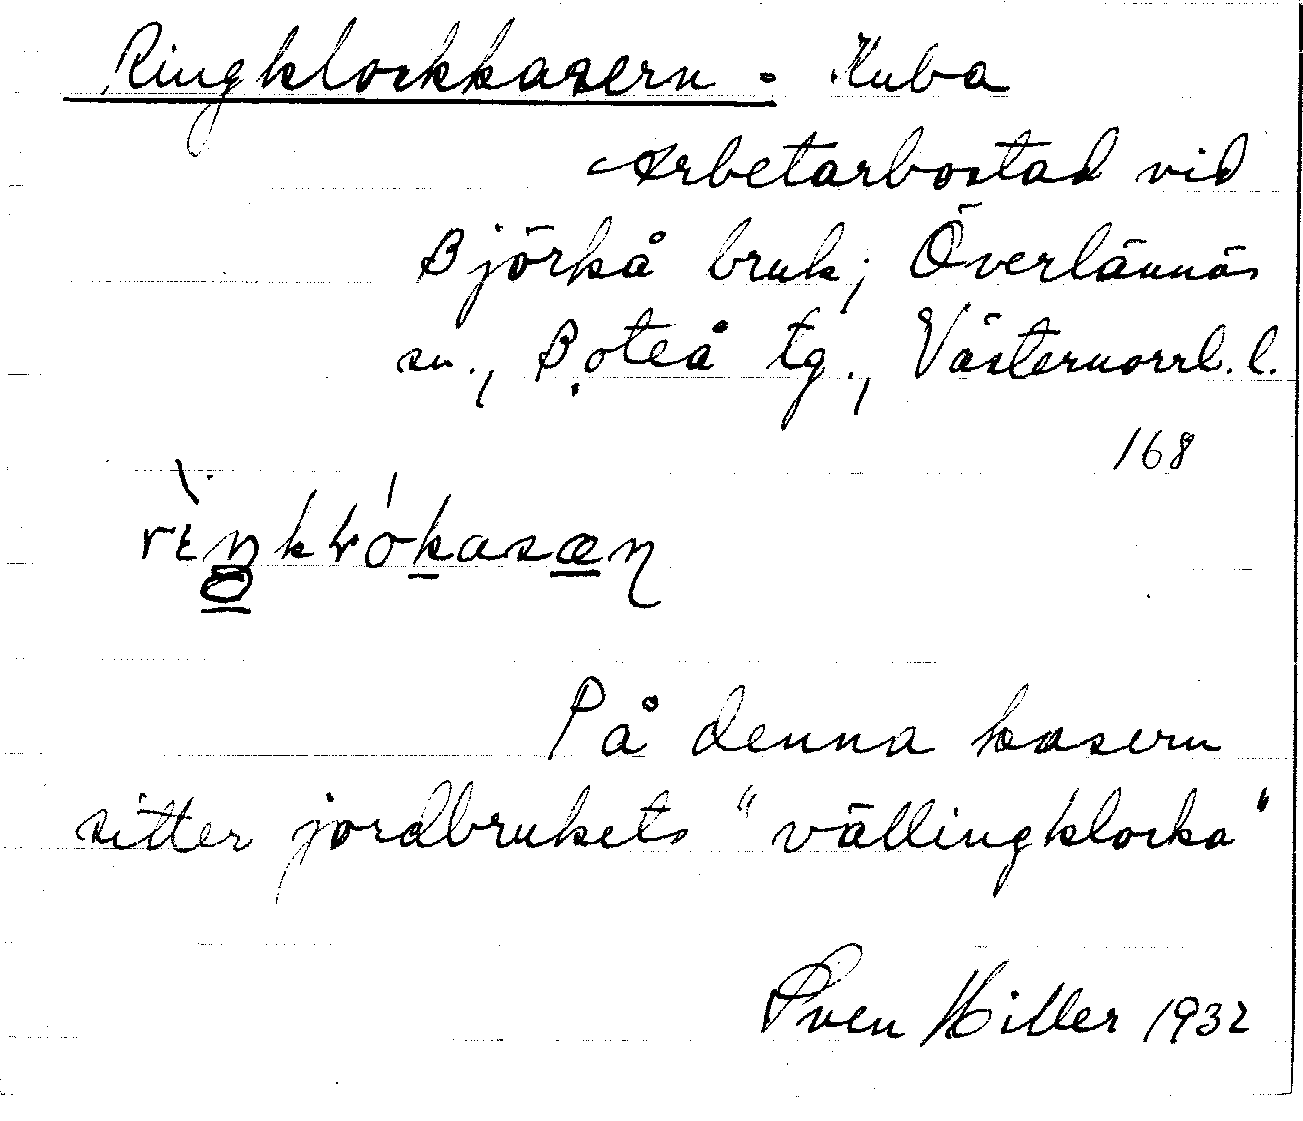 Ringklockkasern. Kuba
Arbetarbostad vid
Björkå bruk; Överlännäs
sn., Boteå tg., Västernorrl. l.
168
På denna kasern
sitter jordbrukets "vällingklocka"
Sven Hiller 1932